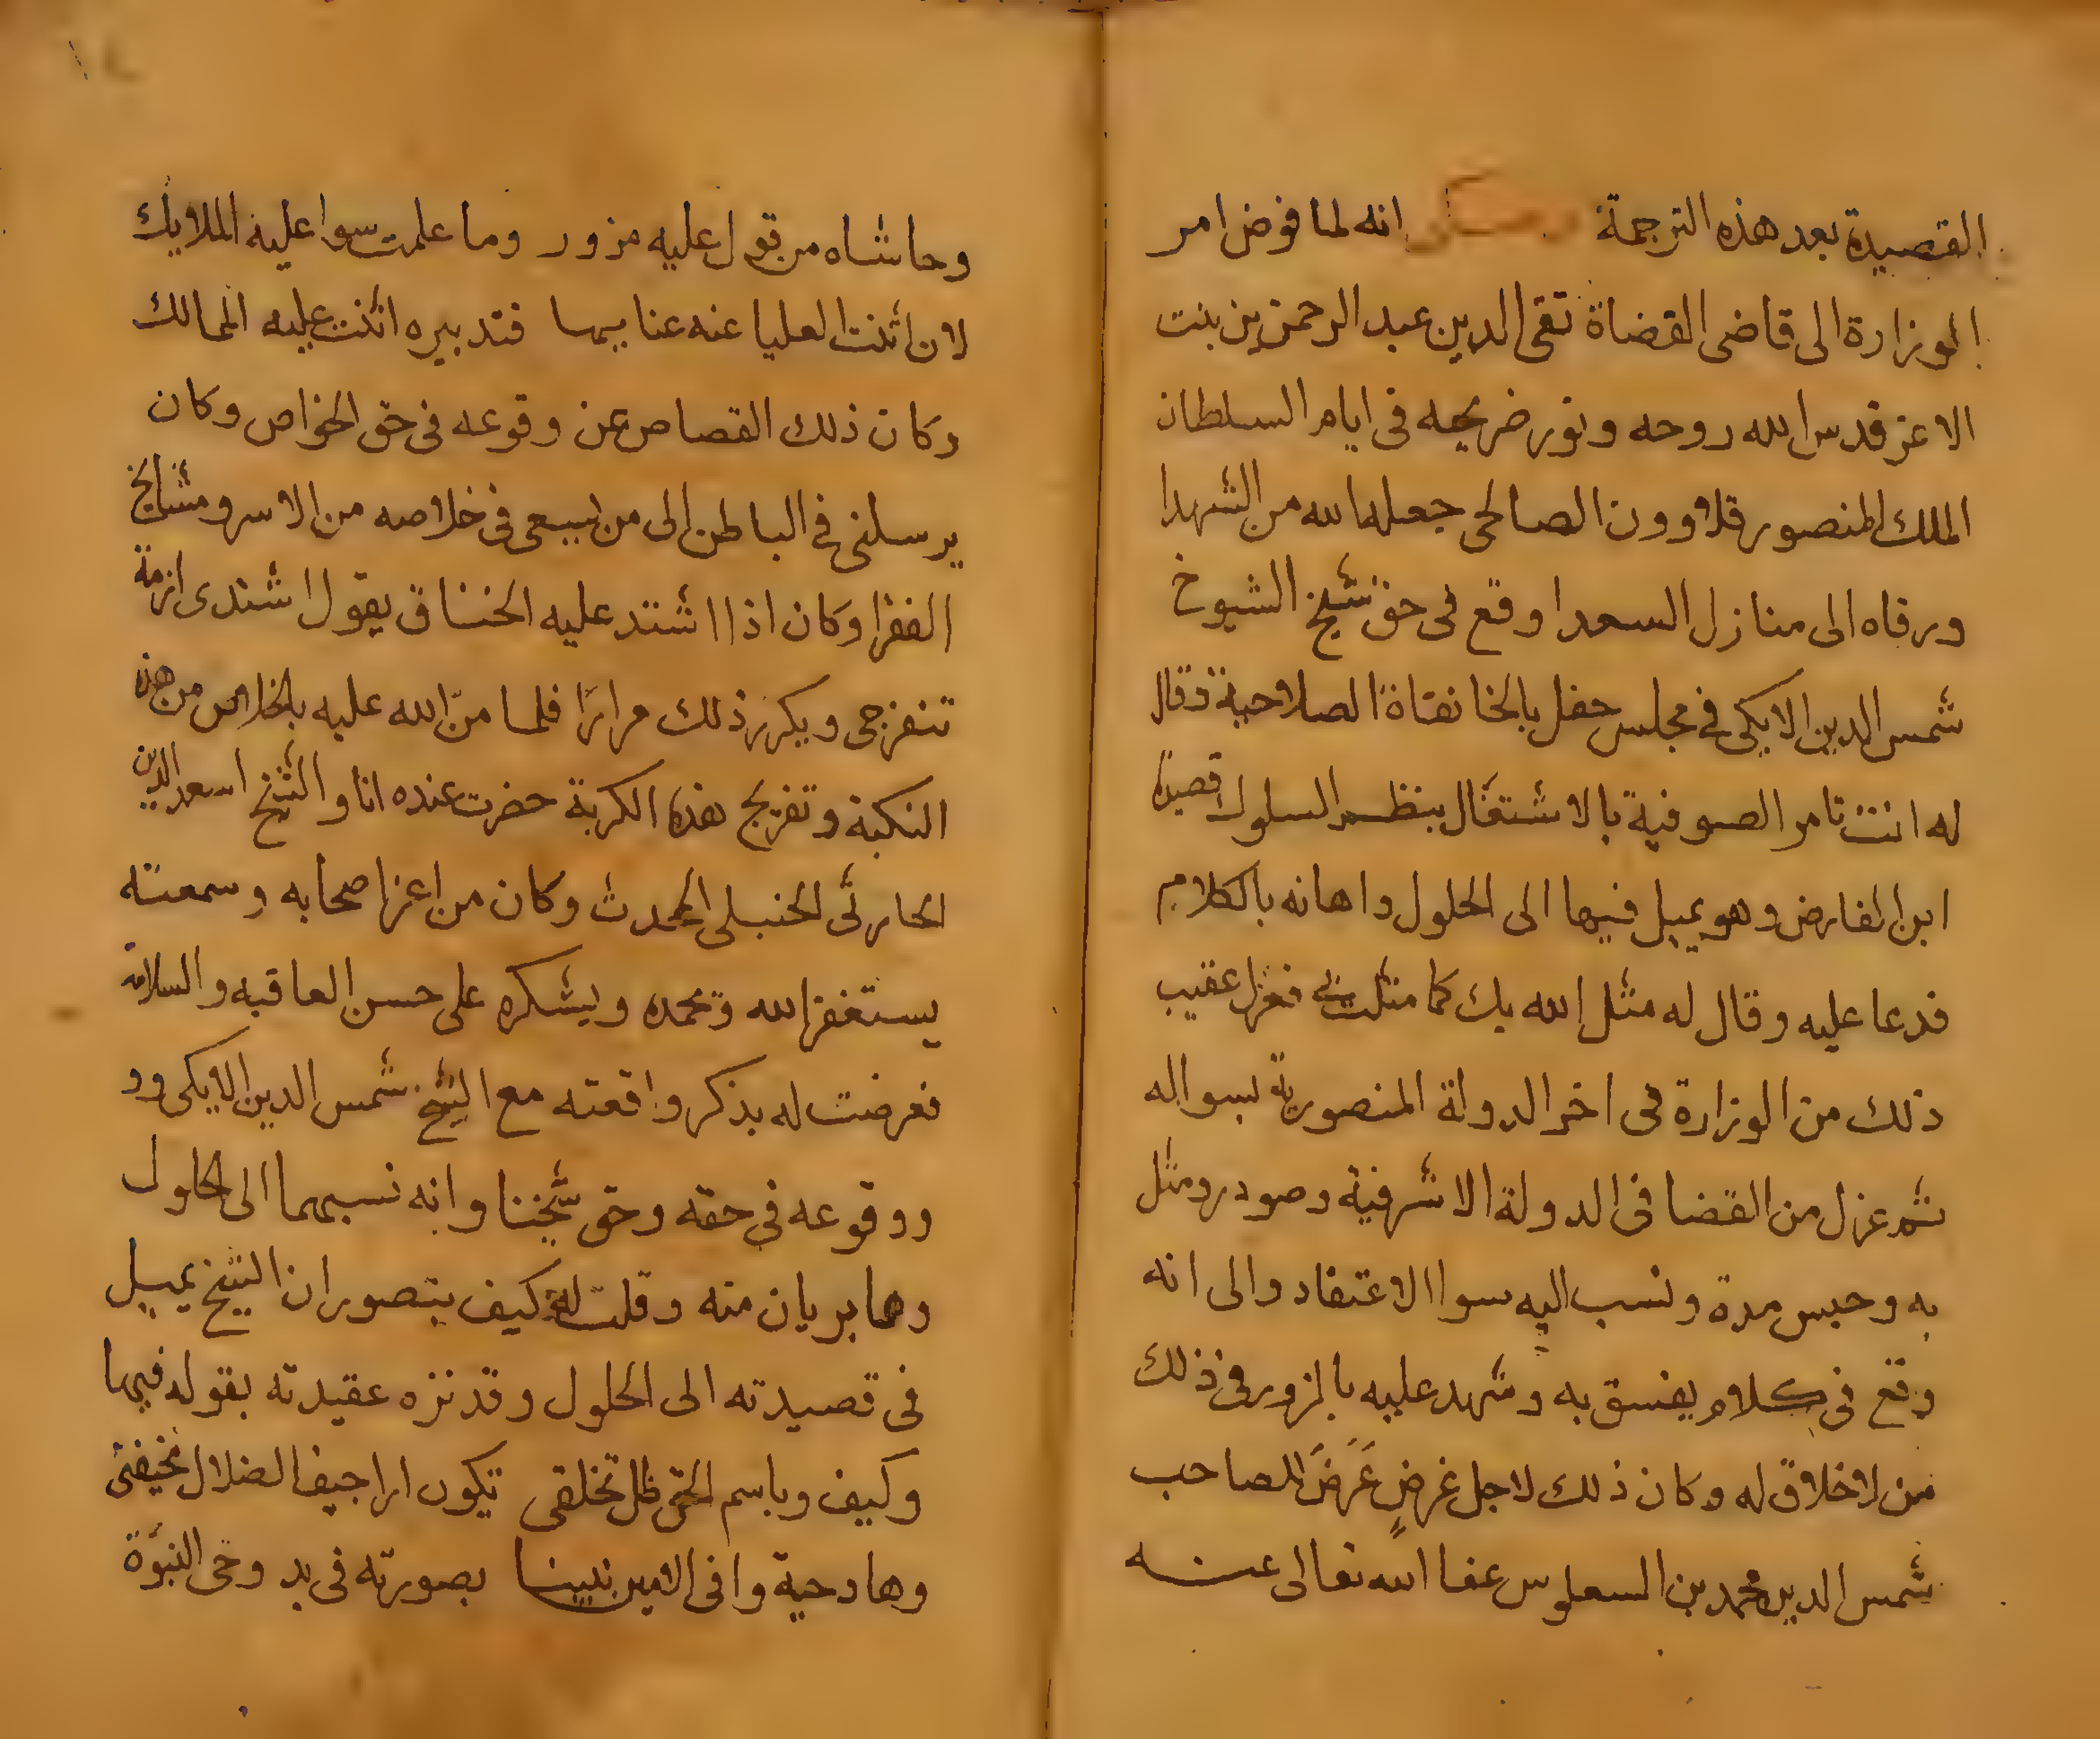 القصيدة بعد هذه الترجمة وحكى انه لما فوض امر
الوزارة الى قاضى القضاة تقى الدين عبد الرحمن بن بنت
الاعز قدس الله روحه ونور ضريحه فى ايام السلطان
الملك المنصور قلاوون الصالحى جعله الله من الشهدا
ورقاه الى منازل السعدا وقع فى حق شيخ الشيوخ
شمس الدين الايكى فى مجلس حفل بالخانقاة الصلاحية وقال
له انت تامر الصوفية بالاشتغال بنظم السلوك قصيدة
ابن الفارض وهو يميل فيها الى الحلول واهانه بالكلام
فدعا عليه وقال له مثل الله بك كما مثلت بى فعزل عقيب
ذلك من الوزارة فى اخر الدولة المنصورية بسواله
ثم عزل من القضا فى الدولة الاشرفية وصودر ومثل
به وحبس مدة ونسب اليه سوا الاعتقاد والى انه
وقع فى كلام يفسق به وشهد عليه بالزور فى ذلك
من لا خلاق له وكان ذلك لاجل غرضٍ عَرَضَ للصاحب
شمس الدين محمد بن السعلوس عفا الله تعالى عنه
وحاشاه من قول عليه مزور وما علمت سوا عليه الملايك
لان اثنت العليا عنه عنا بيها فتدبيره اثنت عليه الممالك
وكان ذلك القصاص عن وقوعه فى حق الخواص وكان
يرسلنى فى الباطن الى من يسعى فى خلاصه من الاسر ومشايخ
الفقرا وكان اذا اشتد عليه الخناق يقول اشتدى ازمة
تنفرجى ويكرر ذلك مرارًا فلما منّ الله عليه بالخلاص من هذه
النكبة وتفريج هذه الكربة حضرت عنده انا والشيخ اسعد الدين
الحارثى الحنبلى المحدث وكان من اعز اصحابه وسمعته
يستغفر الله ويحمده ويشكره على حسن العاقبه والسلامة
فعرضت له بذكر واقعته مع الشيخ شمس الدين الايكى وو
ووقوعه فى حقه وحق شيخنا وانه نسبهما الى الحلول
وهما بريان منه وقلت له كيف يتصور ان الشيخ يميل
فى قصيدته الى الحلول وقد نزه عقيدته بقوله فيها
وكيف وباسم الحق ظل تخلقى تكون اراجيف الضلال مخيفتى
وها دحية وافى الامين نبينا بصورته فى بد وحى النبوّة